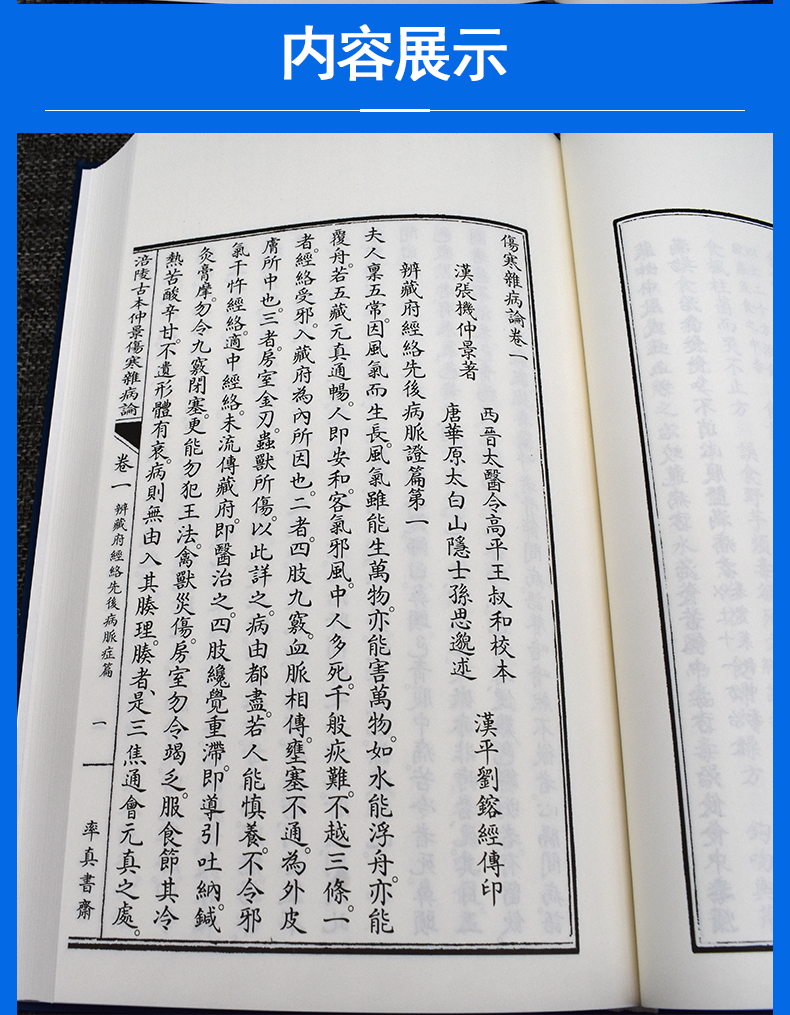 内容展示
傷寒雜病論卷一
漢張機仲景著
西晉太醫令高平王叔和校本
漢平劉鎔經傳印
唐華原太白山隱士孫思邈述
辨藏府經絡先後病脈證篇第一
夫人稟五常。因風氣而生長。風氣雖能生萬物。亦能害萬物。如水能浮舟。亦能
覆舟。若五藏元真通暢。人即安和。客氣邪風。中人多死。千般疢難。不越三條。一
者。經絡受邪。入藏府為內所因也。二者。四肢九竅。血脈相傳。壅塞不通。為外皮
膚所中也。三者。房室金刃。蟲獸所傷。以此詳之。病由都盡。若人能慎養。不令邪
氣干忤經絡。適中經絡。未流傳藏府。即醫治之。四肢纔覺重滯。即導引吐納。鍼
灸膏摩。勿令九竅閉塞。更能勿犯王法。禽獸災傷。房室勿令竭乏。服食節其冷
熱苦酸辛甘。不遺形體有衰。病則無由入其腠理。腠者、是三焦通會元真之處。
涪陵古本仲景傷寒雜病論
卷一 辨藏府經絡先後病脈症篇
一
率真書齋